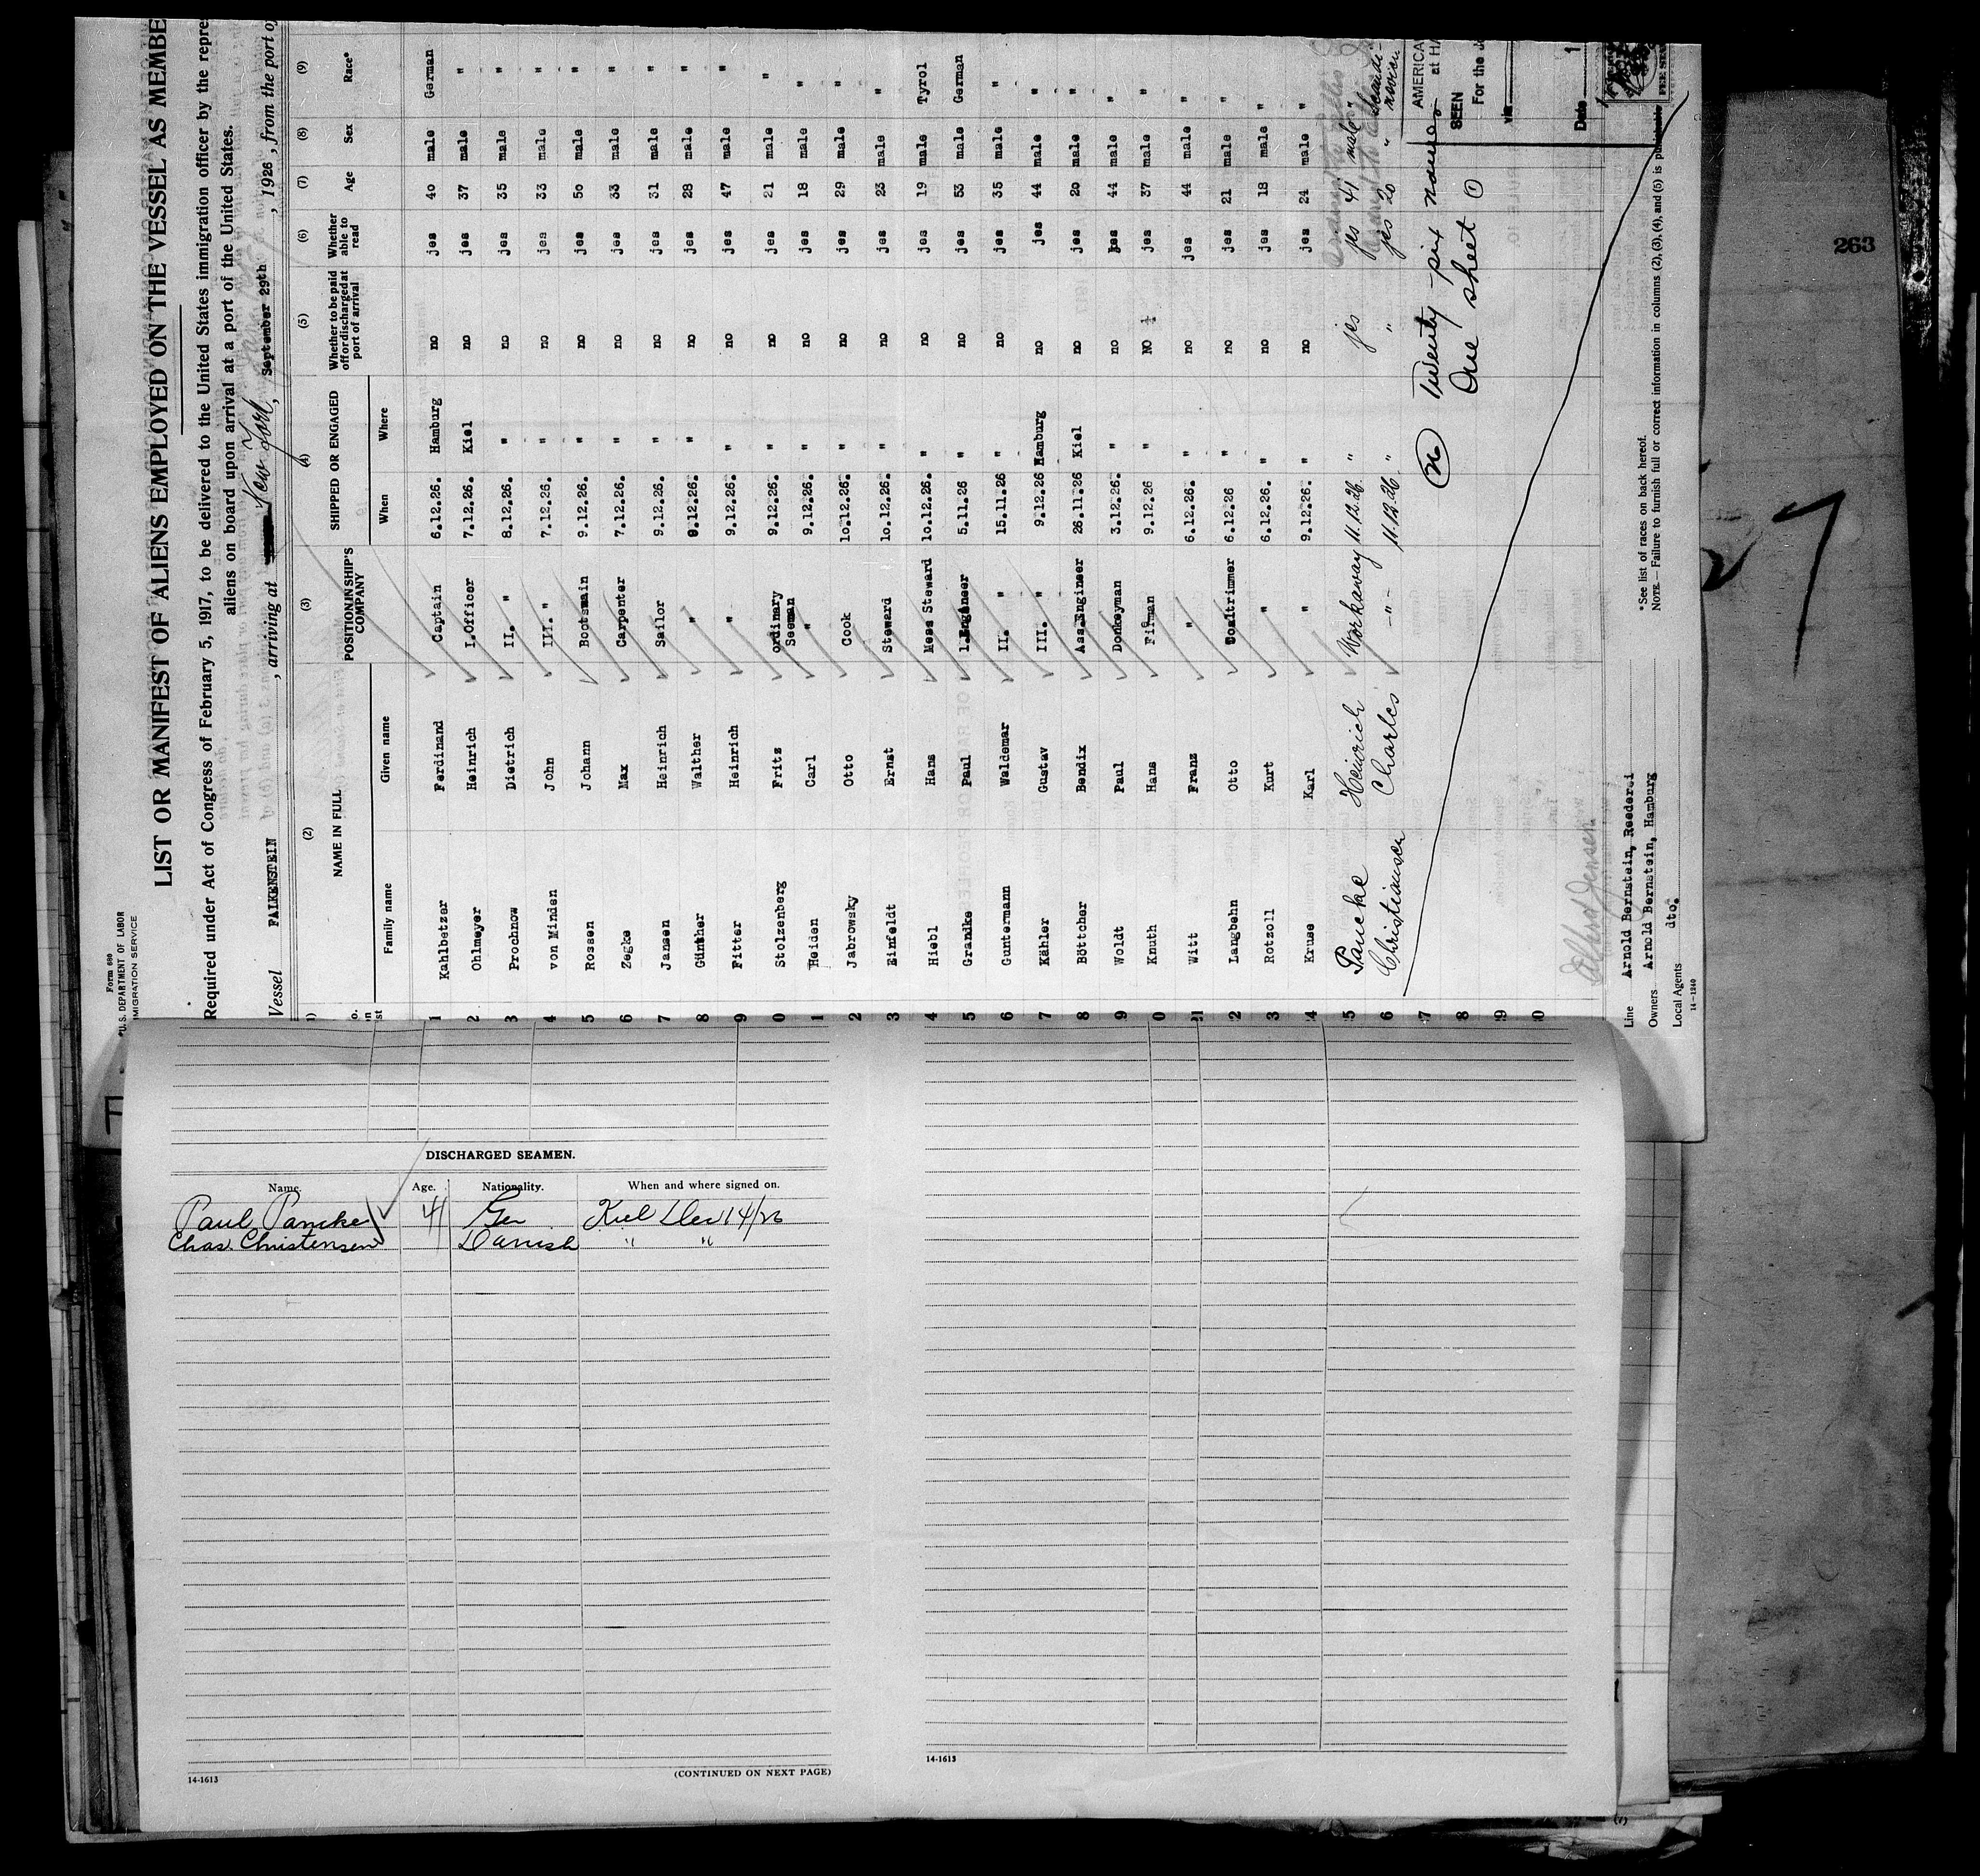 Form 680
U.S. DEPARTMENT OF LABOR
IMMIGRATION SERVICE
LIST OR MANIFEST OF ALIENS EMPLOYED ON THE VESSEL AS MEMBE
Required under Act of Congress of February 5, 1917, to be delivered to the United States immigration officer by the repre
aliens on board upon arrival at a port of the United States.
Vessel FALKENSTEIN , arriving at New York, September 29th , 1926 , from the port of
(2) (3) (4) (5) (6) (7) (8) (9)
NAME IN FULL POSITION IN SHIP'S COMPANY SHIPPED OR ENGAGED Whether to be paid off or discharged at port of arrival Whether able to read Age Sex Race*
Family name Given name When Where
1 Kahlbetzer Ferdinand Captain 6.12.26. Hamburg no jes 40 male German
2 Ohlmeyer Heinrich I.Officer 7.12.26. Kiel no jes 37 male "
3 Prochnow Dietrich II. " 8.12.26. " no jes 35 male "
4 von Minden John III. " 7.12.26. " no jes 33 male "
5 Rossen Johann Bootsmain 9.12.26. " no jes 50 male "
6 Zegke Max Carpenter 7.12.26. " no jes 33 male "
7 Jansen Heinrich Sailor 9.12.26. " no jes 31 male "
8 Günther Walther " 8.12.26. " no jes 28 male "
9 Fitter Heinrich " 9.12.26. " no jes 47 male "
0 Stolzenberg Fritz ordinary Seeman 9.12.26. " no jes 21 male "
1 Heiden Carl " 9.12.26. " no jes 18 male "
2 Jabrowsky Otto Cook 10.12.26. " no jes 29 male "
3 Einfeldt Ernst Steward 10.12.26. " no jes 23 male "
4 Hiebl Hans Mess Steward 10.12.26. " no jes 19 male Tyrol
5 Grandke Paul 1.Engeneer 5.11.26 " no jes 53 male German
6 Guntermann Waldemar II. " 15.11.26 " no jes 35 male "
7 Kähler Gustav III. " 9.12.26 Hamburg no jes 44 male "
8 Böttcher Bendix Ass.Engineer 26.11.26 Kiel no jes 20 male "
9 Woldt Paul Donkeyman 3.12.26. " no jes 44 male "
0 Knuth Hans Fifman 9.12.26 " NO jes 37 male "
21 Witt Franz " 6.12.26. " no jes 44 male "
2 Langbehn Otto Coaltrimmer 6.12.26 " no jes 21 male "
3 Rotzoll Kurt " 6.12.26. " no jes 18 male "
24 Kruse Karl " 9.12.26. " no jes 24 male "
25 Pancke Heinrich Workaway 11.12.26. " jes jes 41 male "
6 Christiansen Charles -"- 11.12.26. " " jes 20 " Scandinavian
27 (26) Twenty-six names
8 One sheet (1)
29
30
AMERICA
at HA
SEEN
For the Jo
via
Date 1
FEE STAM
Line Arnold Bernstein, Reederei
Owners Arnold Bernstein, Hamburg
Local Agents dto.
*See list of races on back hereof.
NOTE.—Failure to furnish full or correct information in columns (2), (3), (4), and (5) is
14-1240
263
DISCHARGED SEAMEN.
Name. Age. Nationality. When and where signed on.
Paul Pancke 41 Ger Kiel Dec 14/26
Chas. Christensen Danish " "
14-1613
(CONTINUED ON NEXT PAGE)
14-1613